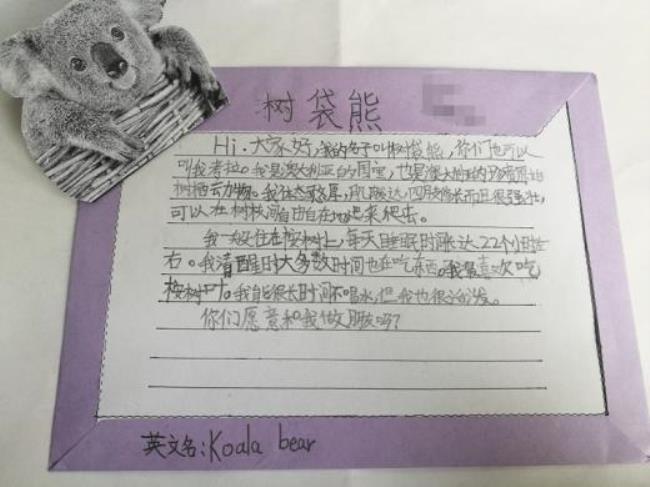 树袋熊
Hi.大家好,我的名字叫树袋熊,你们也可以
叫我考拉。我是澳大利亚的国宝,也是澳大利亚的
树栖动物。我体态憨厚,肌发达,四肢修长而且很强壮,
可以在树枝间自由自在地爬来爬去。
我一般住在桉树上,每天睡眠时间长达22个小时左
右。我清醒时大多数时间也在吃东西。我最喜欢吃
桉树叶。我能很长时间不喝水,但我也很活泼。
你们愿意和我做朋友吗?
英文名:Koala bear